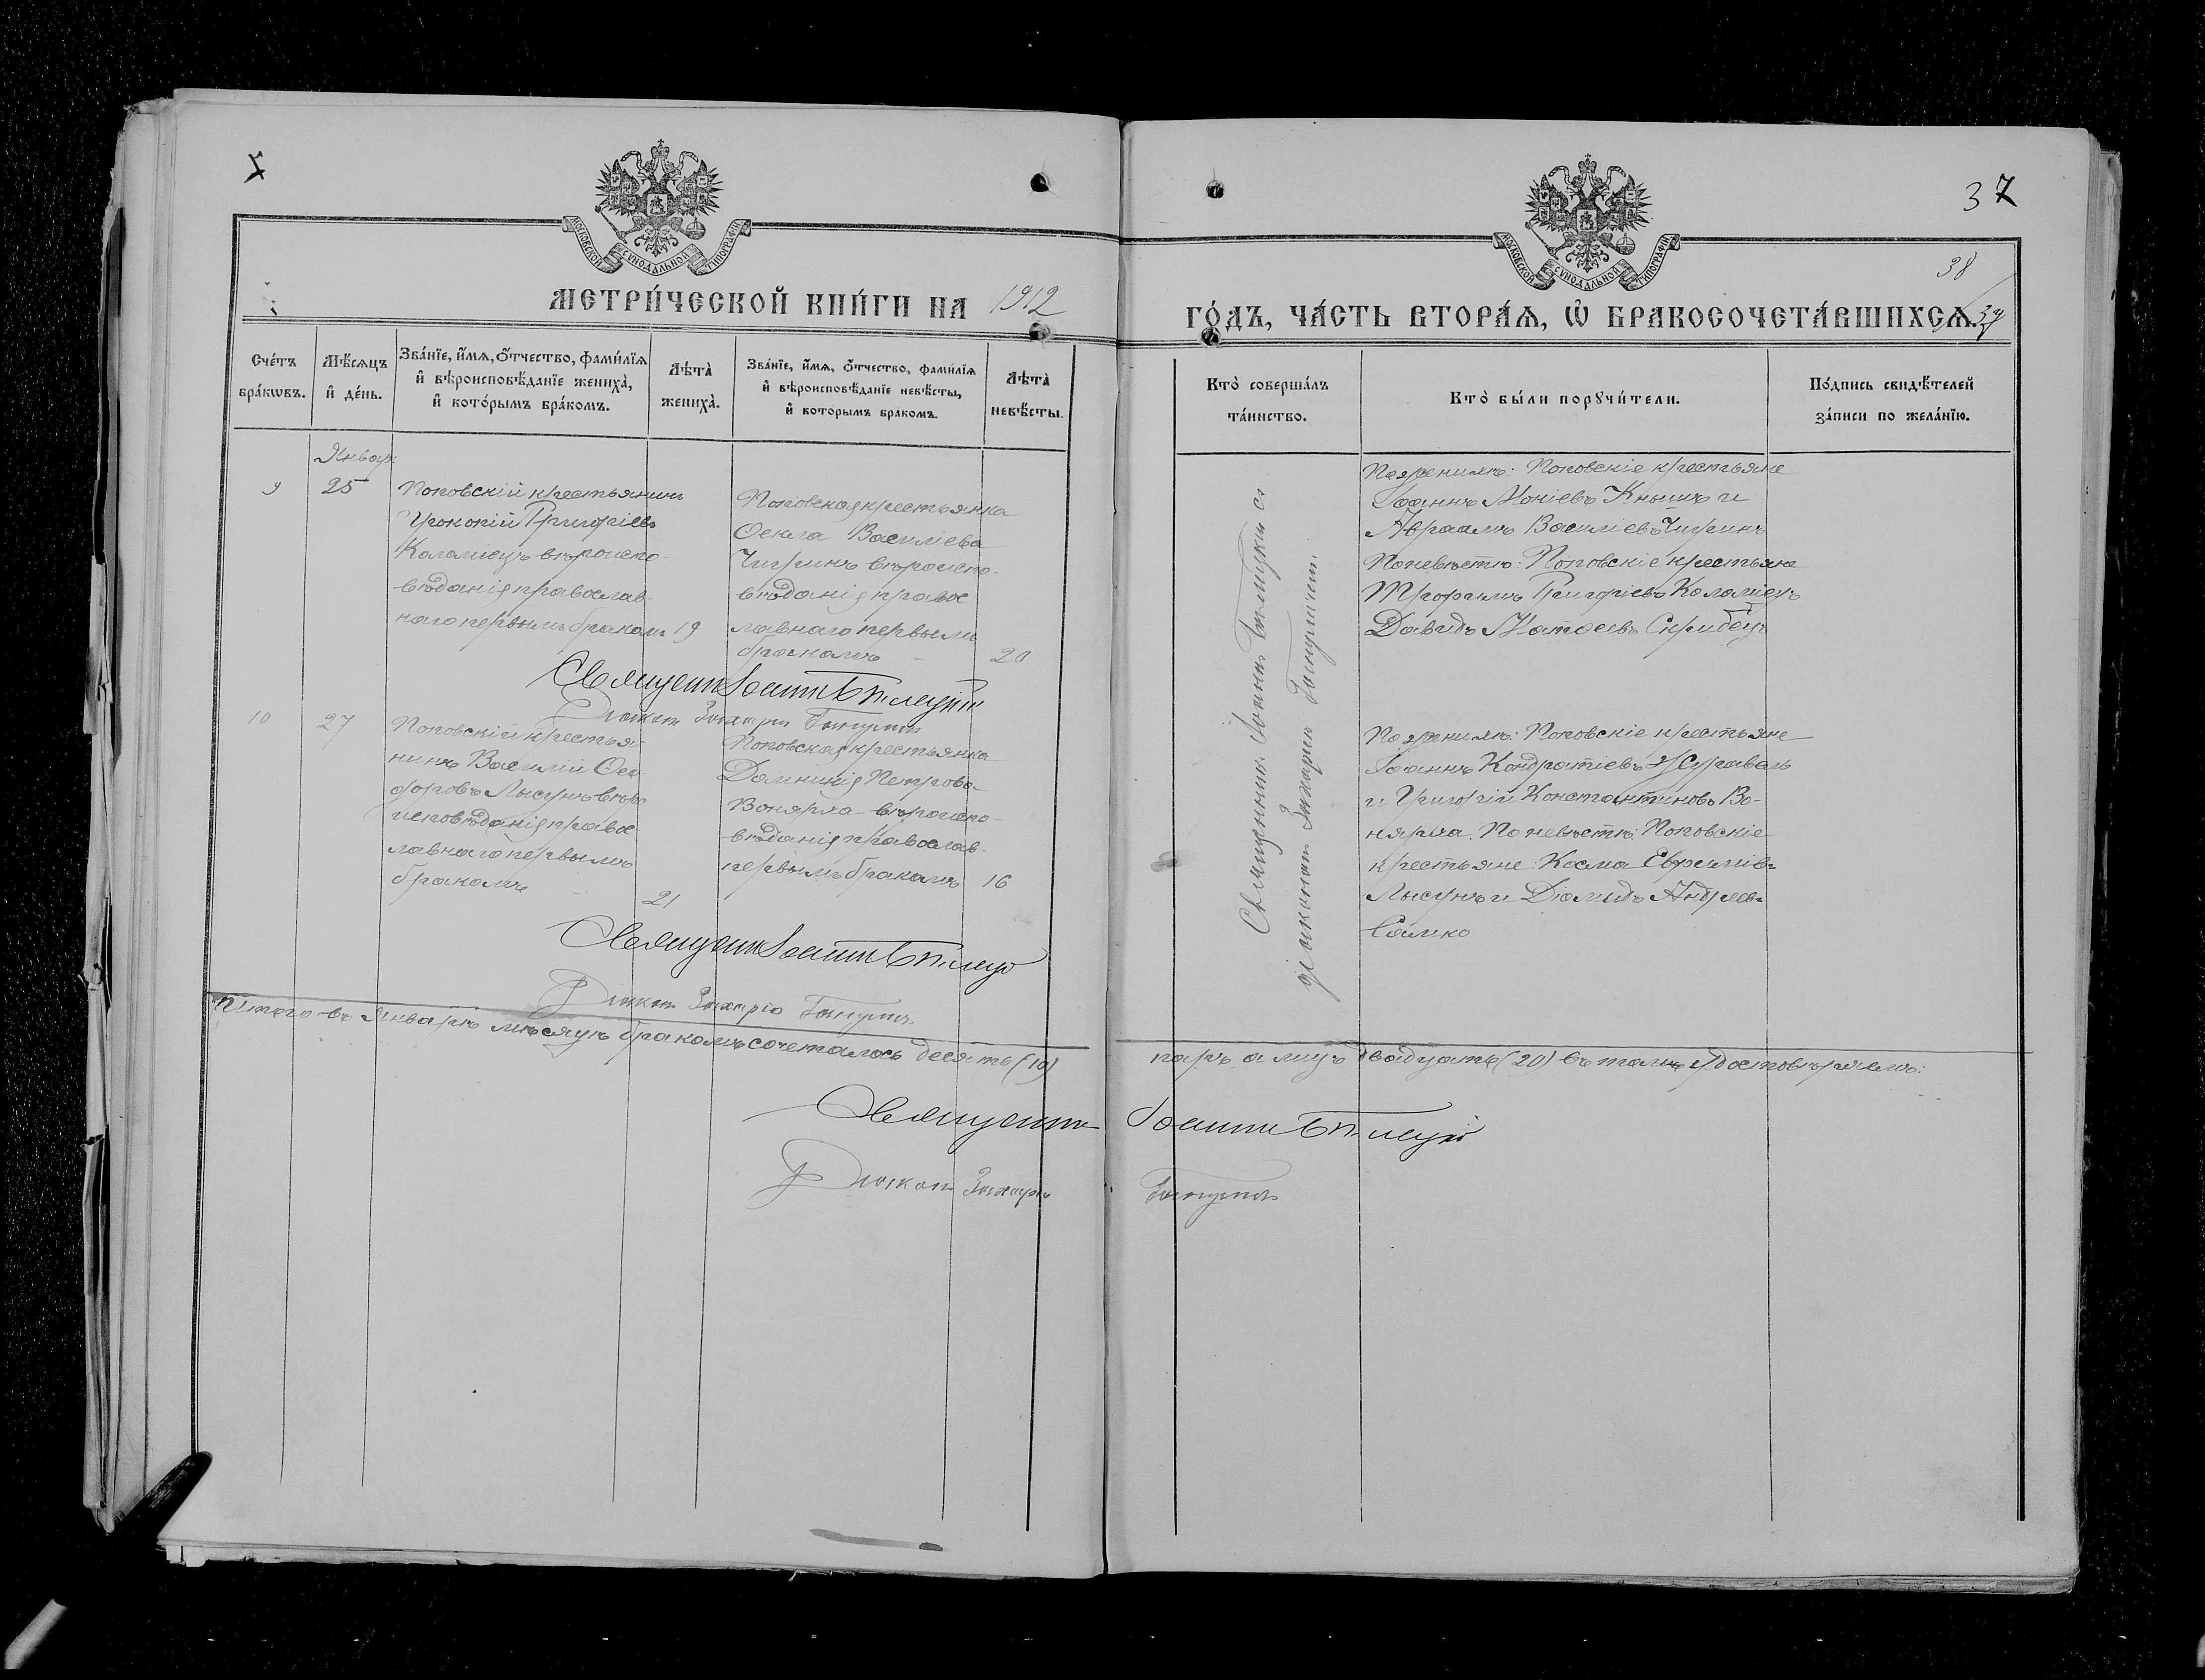 37
МОСКОВСКОЙ СѴНОДАЛЬНОЙ ТИПОГРАФІИ
МОСКОВСКОЙ СѴНОДАЛЬНОЙ ТИПОГРАФІИ
38
39
МЕТРИ́ЧЕСКОЙ КНИ́ГИ НА 1912
ГО́ДЪ, ЧА́СТЬ ВТОРА́Ѧ, Ѡ҆ БРАКОСОЧЕТА́ВШИХСѦ.
Сче́тъ бра́кѡвъ.
Мѣ́сѧцъ и҆ де́нь.
Зва́нїе, и҆́мѧ, ѻ҆́тчество, фами́лїѧ
и҆ вѣроисповѣ́данїе жениха̀,
и҆ кото́рымъ бра́комъ.
Лѣта̀ жениха̀.
Зва́нїе, и҆́мѧ, ѻ҆́тчество, фами́лїѧ
и҆ вѣроисповѣ́данїе невѣ́сты,
и҆ кото́рымъ бракомъ.
Лѣта̀ невѣ́сты.
Кто̀ соверша́лъ та́инство.
Кто̀ бы́ли порꙋчи́тели.
По́дпись свидѣ́телей за́писи по жела́нїю.
Январь
9
25
Поповскій крестьянинъ
Прокопій Григоріевъ
Коломіецъ вѣроиспо-
вѣданія православ-
наго первымъ бракомъ
19
Поповская крестьянка
Ѳекла Василіева
Чигринъ вѣроиспо-
вѣданія правос
лавнаго первымъ
бракомъ
20
Священникъ Іоаннъ Бѣлецкій
Діаконъ Захарія
По женихѣ: Поповскіе крестьяне
Іоаннъ Мокіевъ Кнышъ и
Авраамъ Василіевъ Чигринъ
По невѣстѣ: Поповскіе крестьяне
Трофимъ Григоріевъ Коломіецъ
Давидъ Матѳеевъ Скрибецъ
Священникъ Іоаннъ Бѣлецкій съ
діакономъ Захаріею
10
27
Поповскій крестья-
нинъ Василій Ѳео
доровъ Лысунъ вѣро
исповѣданія правос
лавнаго первымъ
бракомъ
21
Поповская крестьянка
Домникія Петрова
Вонярха вѣроиспо-
вѣданія православ-
первымъ бракомъ
16
Священникъ Іоаннъ Бѣлецкій
Діаконъ Захарія
По женихѣ: Поповскіе крестьяне
Іоаннъ Кондратіевъ Журавель
и Григорій Константиновъ Во-
нярха. По невѣстѣ: Поповскіе
крестьяне: Косма Евфиміевъ
Лысунъ и Діомидъ Андреевъ
Самко
Итого въ Январѣ мѣсяцѣ бракомъ сочеталось десять (10)
паръ а лицъ двадцать (20) въ томъ удостовѣряемъ:
Священникъ Іоаннъ Бѣлецкій
Діаконъ Захарія